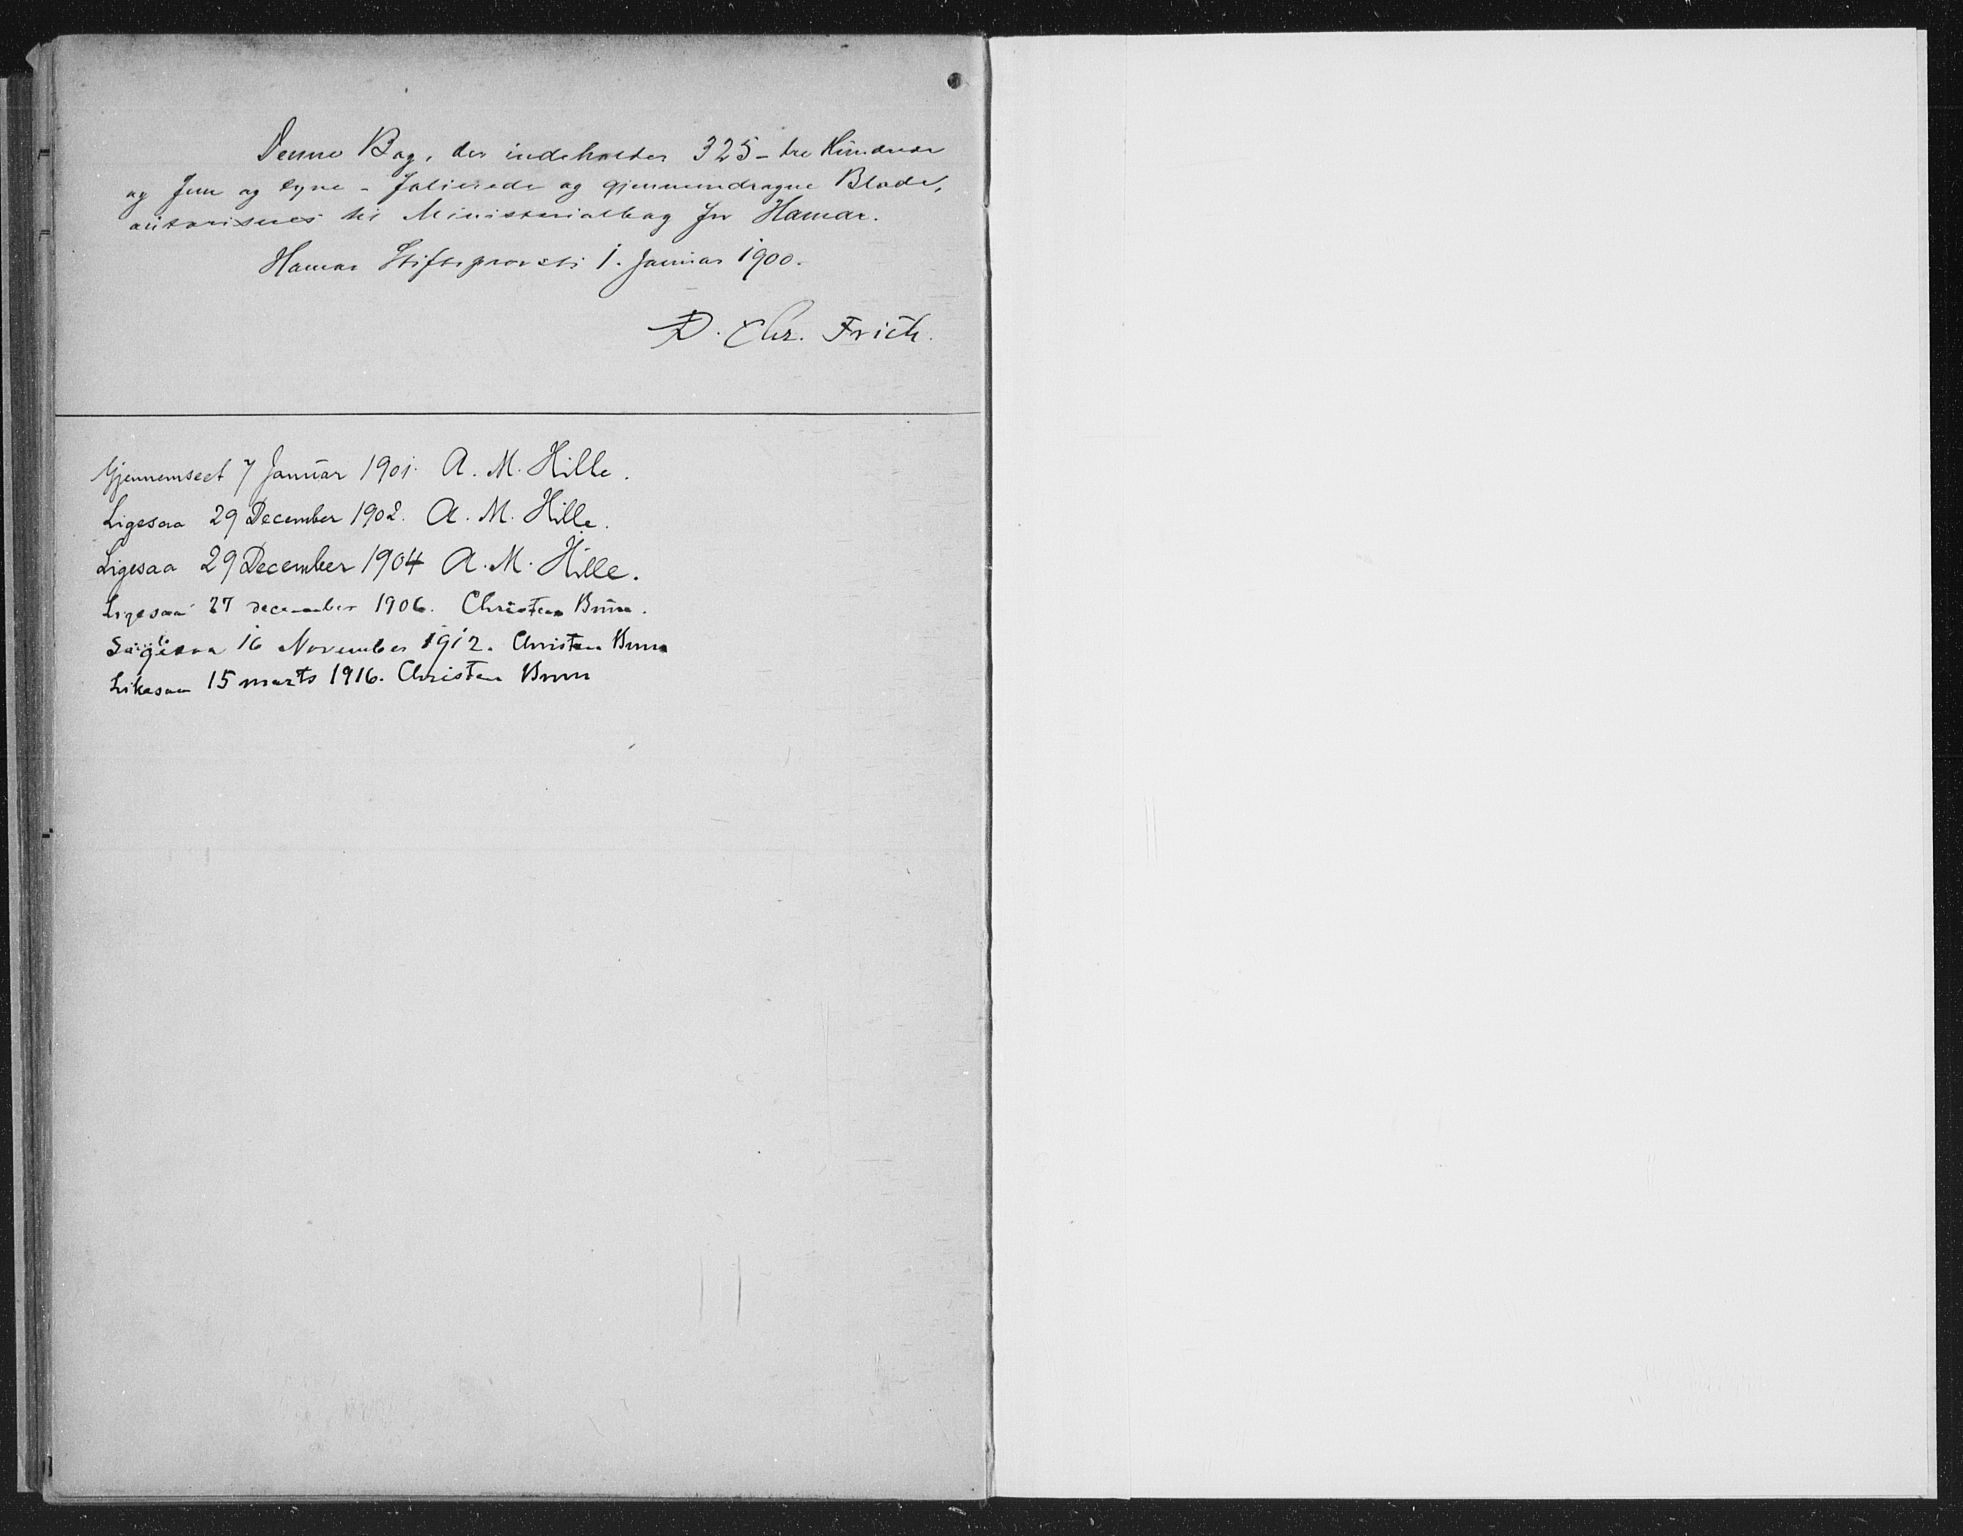 Denne Bog, der indeholder 325 – tre Hundrede
og fem og tyve – folierede og gjennemdragne Blade,
autoriseres til Ministerialbog for Hamar.
Hamar Stiftsprovsti 1. Januar 1900.
D. Chr. Frich.
Gjennemseet 7 Januar 1901. A. M. Hille.
Ligesaa 29 December 1902. A. M. Hille.
Ligesaa 29 December 1904 A. M. Hille.
Ligesaa 27 december 1906. Christen Brun.
16 November 1912. Christen Brun
Likesaa 15 marts 1916. Christen Brun